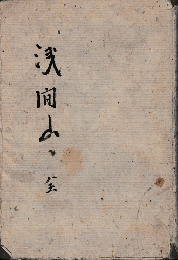 浅間山 全